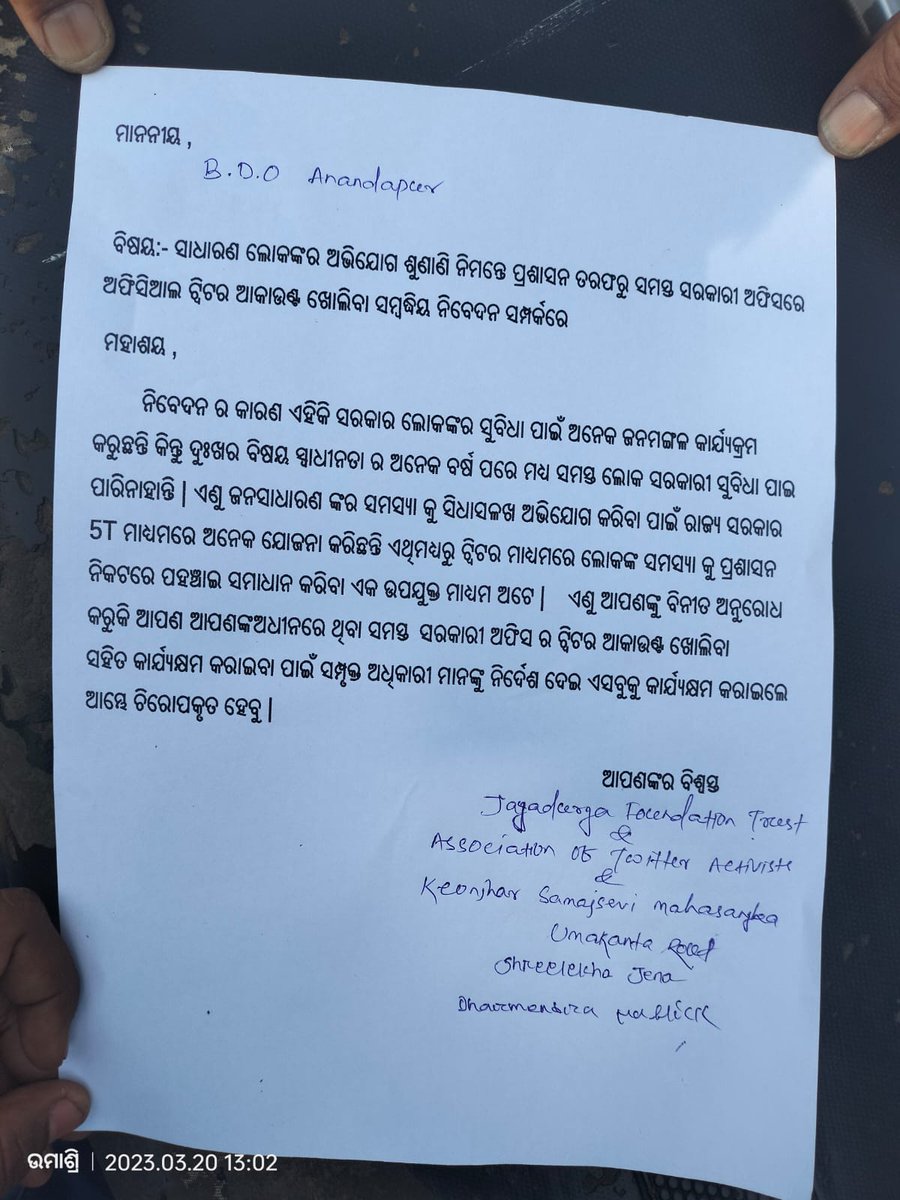 ମାନନୀୟ ,
B.D.O Anandapur
ବିଷୟ:- ସାଧାରଣ ଲୋକଙ୍କର ଅଭିଯୋଗ ଶୁଣାଣି ନିମନ୍ତେ ପ୍ରଶାସନ ତରଫରୁ ସମସ୍ତ ସରକାରୀ ଅଫିସରେ
ଅଫିସିଆଲ ଟ୍ୱିଟର ଆକାଉଣ୍ଟ ଖୋଲିବା ସମ୍ବନ୍ଧିୟ ନିବେଦନ ସମ୍ପର୍କରେ
ମହାଶୟ ,
ନିବେଦନ ର କାରଣ ଏହିକି ସରକାର ଲୋକଙ୍କର ସୁବିଧା ପାଇଁ ଅନେକ ଜନମଙ୍ଗଳ କାର୍ଯ୍ୟକ୍ରମ
କରୁଛନ୍ତି କିନ୍ତୁ ଦୁଃଖର ବିଷୟ ସ୍ୱାଧୀନତା ର ଅନେକ ବର୍ଷ ପରେ ମଧ୍ୟ ସମସ୍ତ ଲୋକ ସରକାରୀ ସୁବିଧା ପାଇ
ପାରିନାହାନ୍ତି | ଏଣୁ ଜନସାଧାରଣ ଙ୍କର ସମସ୍ୟା କୁ ସିଧାସଳଖ ଅଭିଯୋଗ କରିବା ପାଇଁ ରାଜ୍ୟ ସରକାର
5T ମାଧ୍ୟମରେ ଅନେକ ଯୋଜନା କରିଛନ୍ତି ଏଥିମଧ୍ୟରୁ ଟ୍ୱିଟର ମାଧ୍ୟମରେ ଲୋକଙ୍କ ସମସ୍ୟା କୁ ପ୍ରଶାସନ
ନିକଟରେ ପହଞ୍ଚାଇ ସମାଧାନ କରିବା ଏକ ଉପଯୁକ୍ତ ମାଧ୍ୟମ ଅଟେ | ଏଣୁ ଆପଣଙ୍କୁ ବିନୀତ ଅନୁରୋଧ
କରୁକି ଆପଣ ଆପଣଙ୍କଅଧୀନରେ ଥିବା ସମସ୍ତ ସରକାରୀ ଅଫିସ ର ଟ୍ୱିଟର ଆକାଉଣ୍ଟ ଖୋଲିବା
ସହିତ କାର୍ଯ୍ୟକ୍ଷମ କରାଇବା ପାଇଁ ସମ୍ପୃକ୍ତ ଅଧିକାରୀ ମାନଙ୍କୁ ନିର୍ଦେଶ ଦେଇ ଏସବୁକୁ କାର୍ଯ୍ୟକ୍ଷମ କରାଇଲେ
ଆମ୍ଭେ ଚିରୋପକୃତ ହେବୁ |
ଆପଣଙ୍କର ବିଶ୍ୱସ୍ତ
Jagadurga Foundation Trust
&
Association of Twitter Activists
&
Keonjhar Samajsevi mahasangha
Umakanta
Shreelekha Jena
Dharmendra Mallick
ଉମାଶ୍ରି | 2023.03.20 13:02